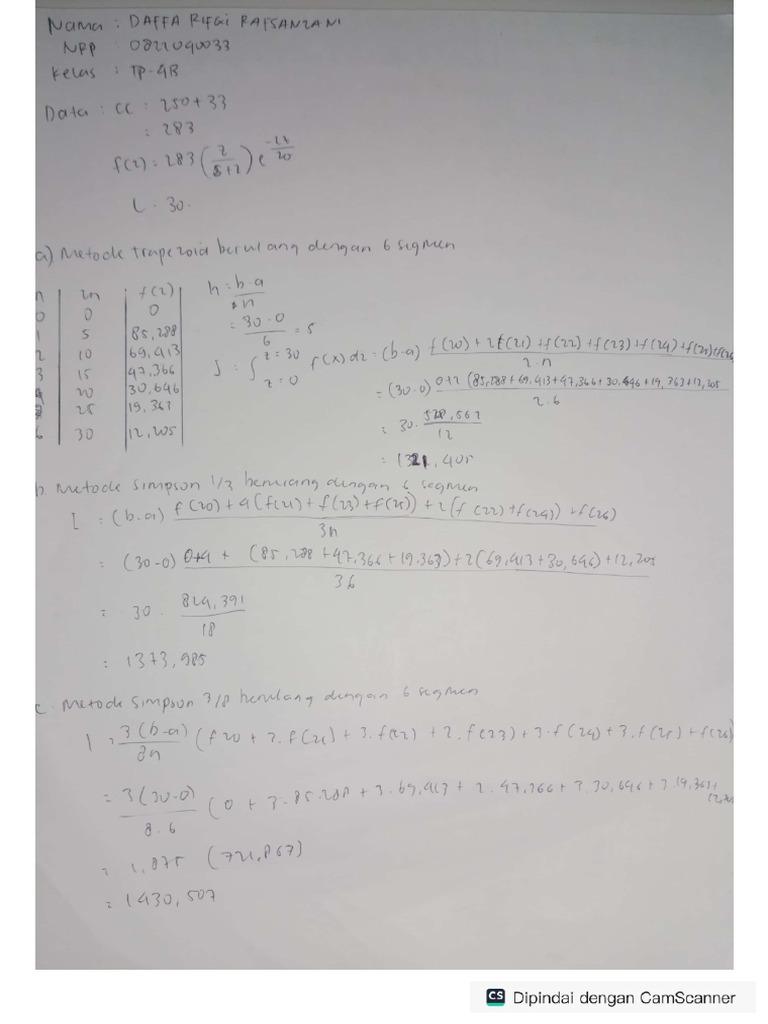 Nama : DAFFA RIFGI RAFSANZANI
NPP : 0821040033
Kelas : TP-4B
Data : CC : 250+33
: 283
f(z) : 283 (z/(5+z)) e^(-2z/30)
L . 30.
a) Metode trapezoia berulang dengan 6 segmen
n | zn | f(z)
0 | 0 | 0
1 | 5 | 85,288
2 | 10 | 69,413
3 | 15 | 47,366
4 | 20 | 30,646
25 | 19,363
6 | 30 | 12,205
h = b-a / n
= 30-0 / 6 = 5
J : ∫ z=30 z=0 f(x) dz = (b-a) f(z0) + 2f(z1) + f(z2) + f(z3) + f(z4) + f(z5) / 2.n
= (30-0) 0+2 (85,288+69,413+47,366+30,646+19,363+12,205 / 2.6
: 30. 528,562 / 12
: 1321,405
b. Metode simpson 1/3 berulang dengan 6 segmen
I : (b-a) f(z0) + 4(f(z1) + f(z3) + f(z5)) + 2(f(z2) + f(z4)) + f(z6) / 3n
= (30-0) 0+4 + (85,288 +47,366 +19,363)+2(69,413+30,646)+12,205 / 36
= 30 . 824,391 / 18
: 1373,985
c. Metode simpson 3/8 berulang dengan 6 segmen
I = 3(b-a) / 8n (f z0 + 3. f(z1) + 3. f(z2) + 2. f(z3) + 3. f(z4) + 3. f(z5) + f(z6)
= 3(30-0) / 8.6 (0 + 3.85.288 + 3.69,413 + 2.47,366 + 3.30,646 + 3.19,363+
= 1,875 (721,867)
= 1430,507
CS Dipindai dengan CamScanner